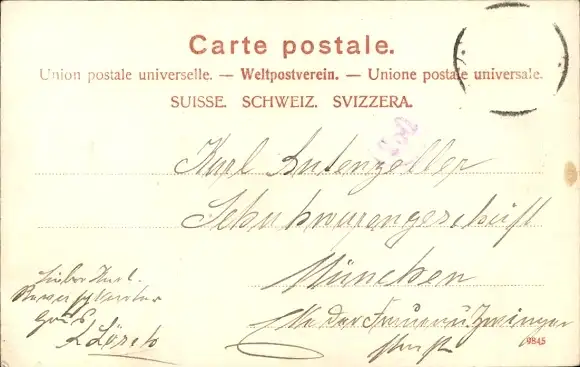 Carte postale.
Union postale universelle. — Weltpostverein. — Unione postale universale.
SUISSE. SCHWEIZ. SVIZZERA.
Karl Lutenzeller
Schuhwarengeschäft
München
Ecke der Frauen u Zwinger
Lieber Karl.
9845